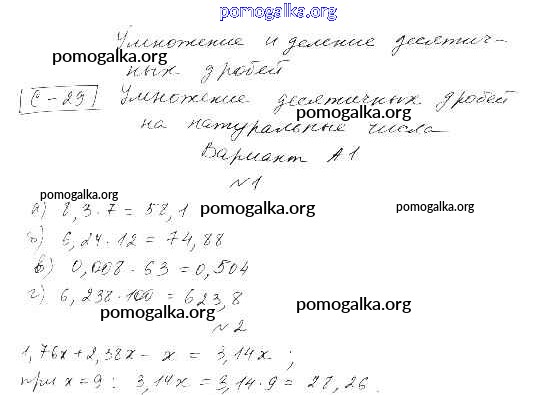 pomogalka.org
Умножение и деление десятич-
pomogalka.org
ных дробей
С-29 Умножение десятичных дробей
pomogalka.org
на натуральные числа
Вариант А1
№1
pomogalka.org
а) 8,3·7 = 58,1 pomogalka.org pomogalka.org
б) 6,24·12 = 74,88
в) 0,008·63 = 0,504
г) 6,238·100 = 623,8
pomogalka.org pomogalka.org
№2
1,76x + 2,38x - x = 3,14x ;
при x = 9 : 3,14x = 3,14·9 = 28,26.